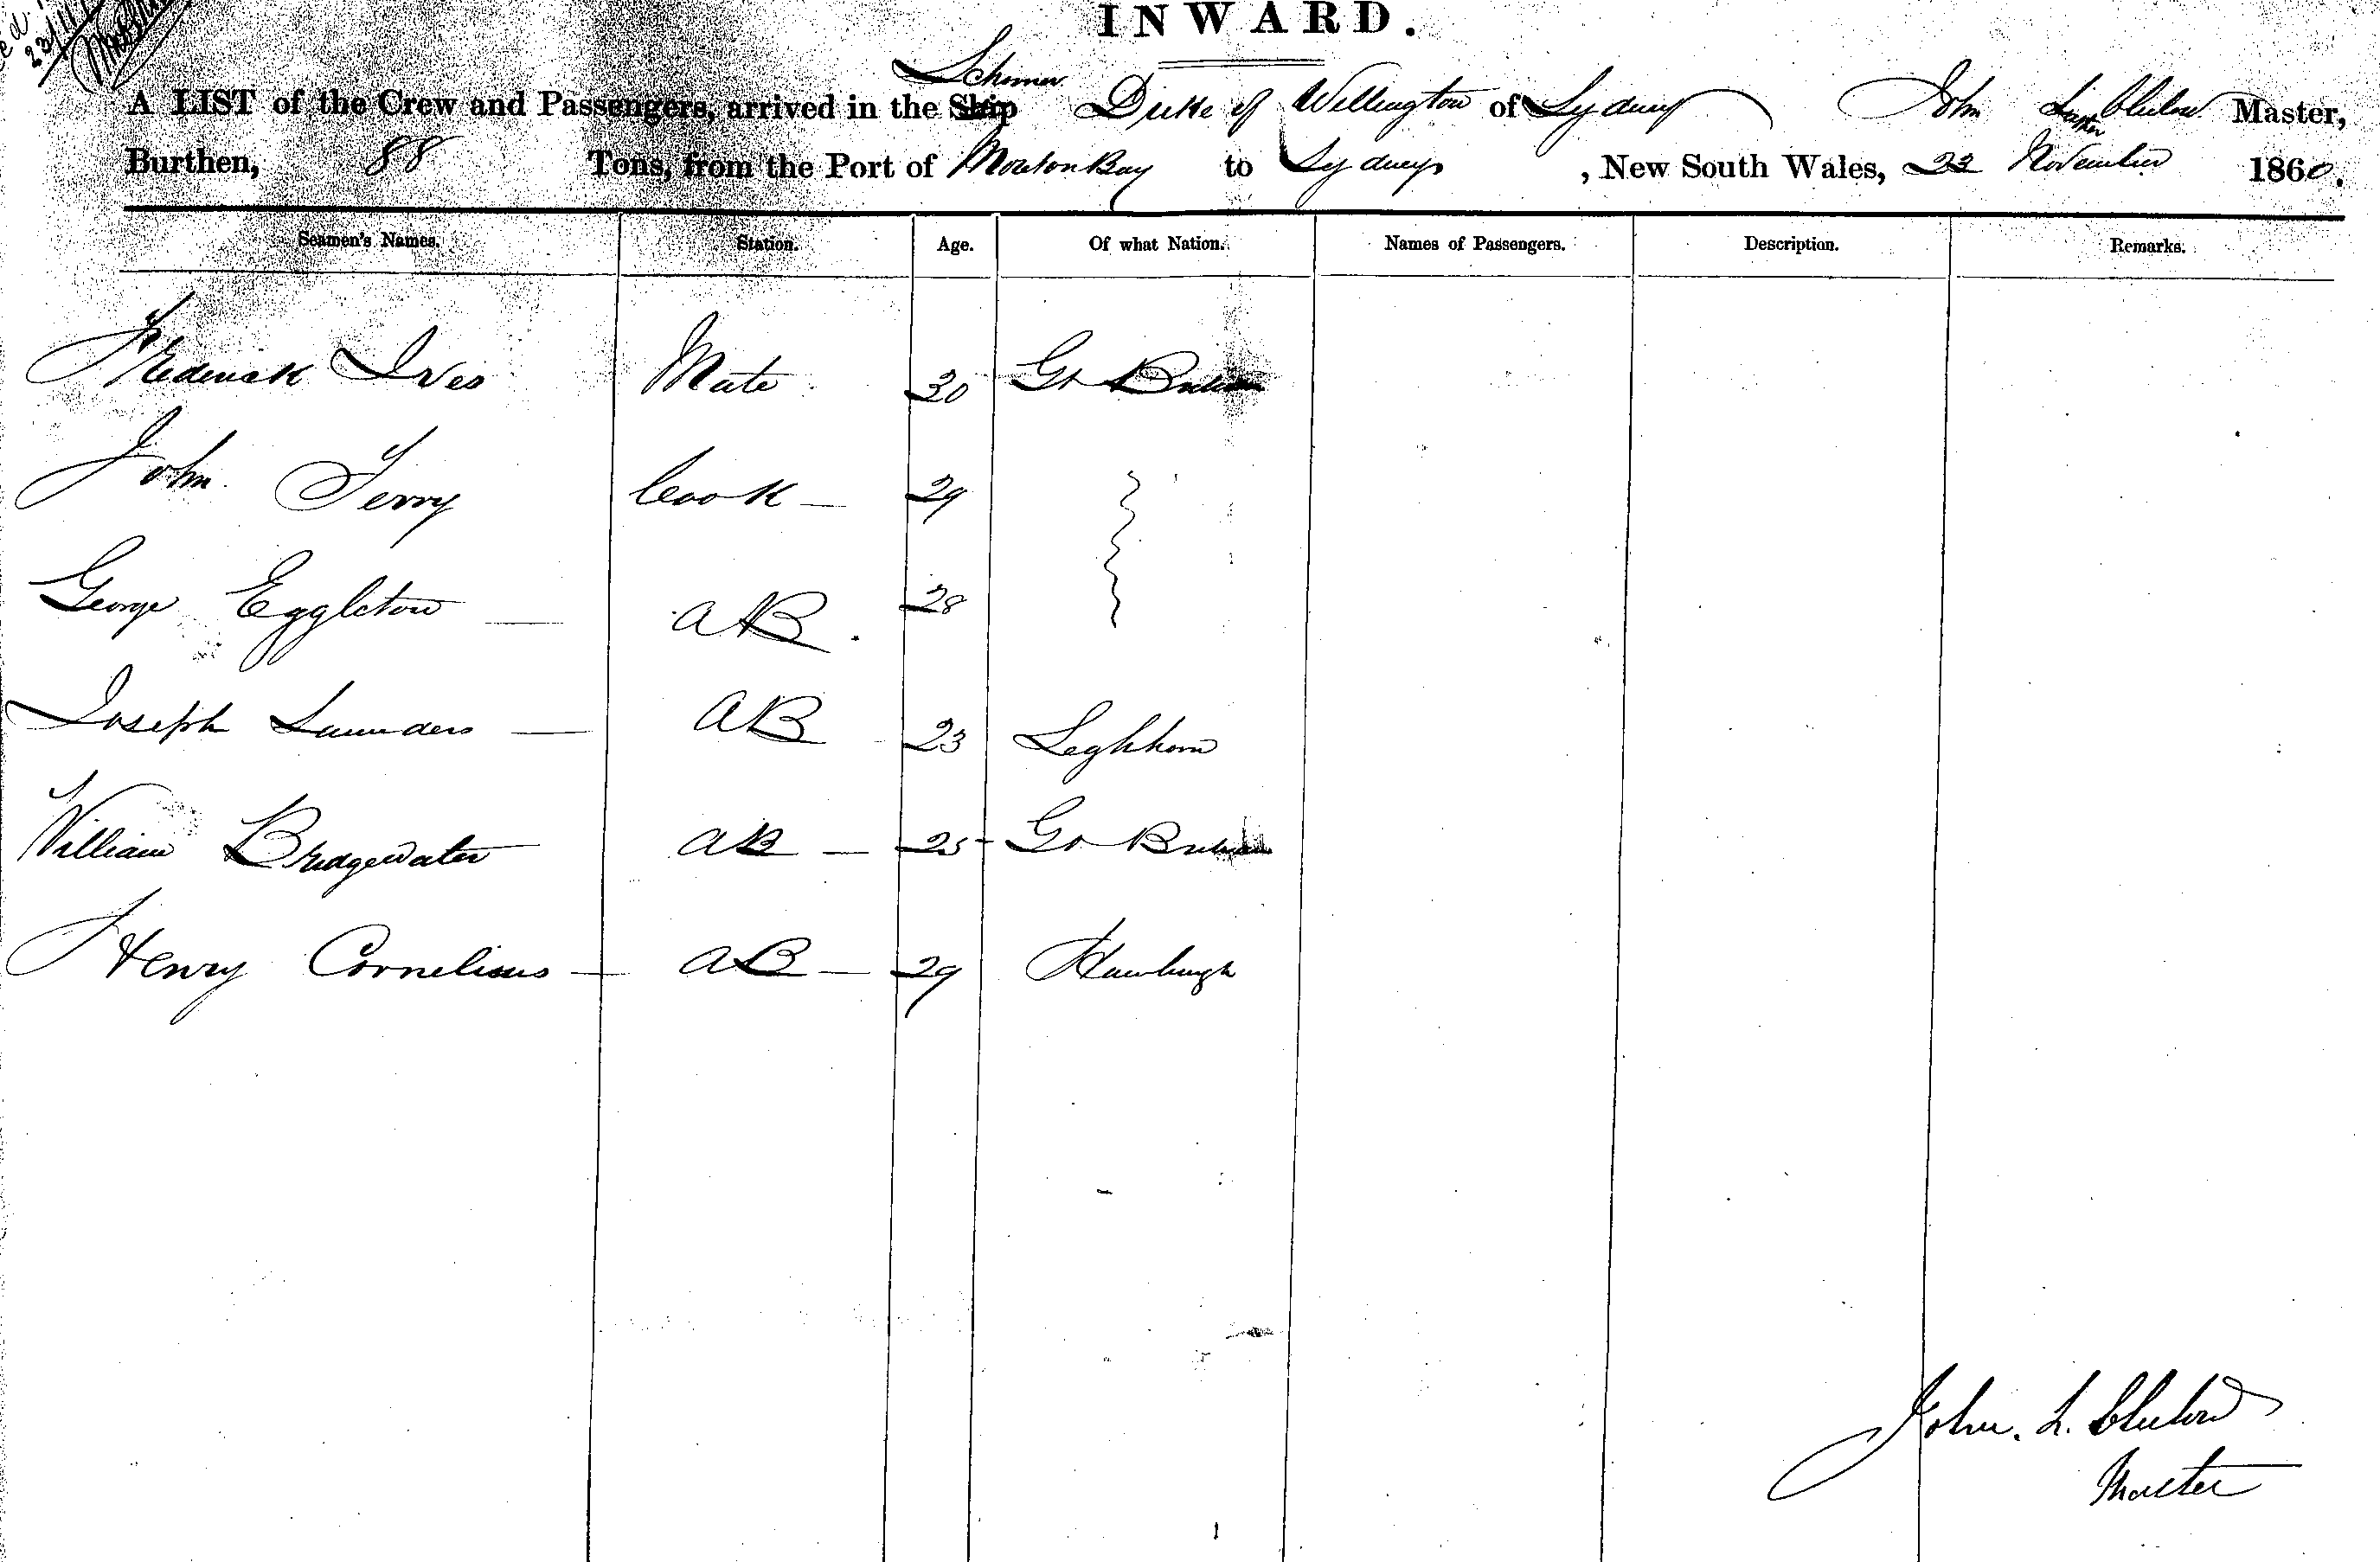 23/11/
INWARD.
Schooner
A LIST of the Crew and Passengers, arrived in the Ship Duke of Wellington of Sydney John Master,
Burthen, 88 Tons, from the Port of Moreton Bay to Sydney, New South Wales, 23 November 1860.
Seamen's Names. Station. Age. Of what Nation. Names of Passengers. Description. Remarks.
Frederick Ives Mate 30 Gt Britain
John Terry Cook — 29
George Eggleton — AB. 28
Joseph Saunders — AB 23 Leghhorn
William Bridgewater AB — 25 - Gt Britain
Henry Cornelious — AB — 29 Hamburgh
John. L. Chulow
Master